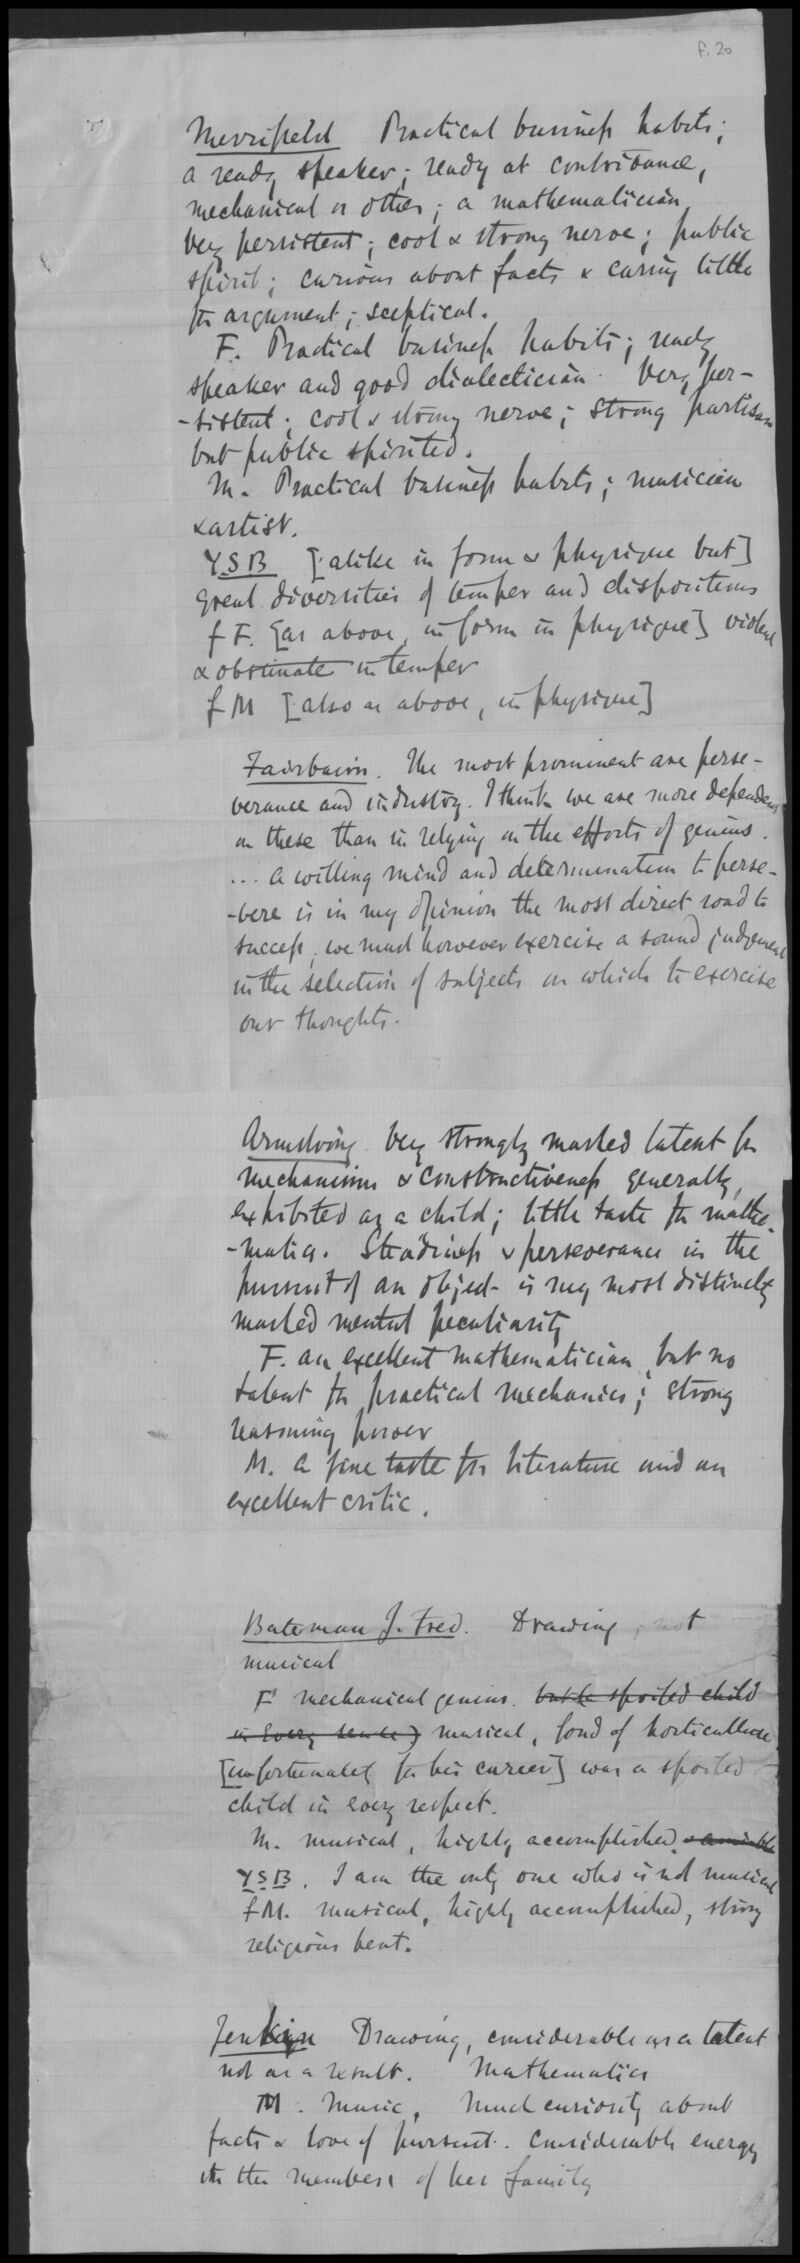 F. 20
Merrifield Practical business habits;
a ready speaker; ready at contrivance,
mechanical or other; a mathematician,
very persistent; cool & strong nerve; public
spirit; curious about facts & caring little
for argument; sceptical.
F. Practical business habits; ready
speaker and good dialectician. Very per-
-sistent; cool & strong nerve; strong partisan
but public spirited.
M. Practical business habits; musician
& artist.
YSB [alike in form & physique but]
great diversities of temper and dispositions
f F. [as above, in form in physique] violent
& obstinate in temper
f M [also as above, in physique]
Fairbairn. The most prominent are perse-
verance and industry. I think we are more dependent
on these than in relying on the efforts of genius.
... a willing mind and determination to perse-
-vere is in my opinion the most direct road to
success, we must however exercise a sound judgement
in the selection of subjects on which to exercise
our thoughts.
Armstrong Very strongly marked talent for
mechanism & constructiveness generally,
exhibited as a child; little taste for mathe-
-matics. Steadiness & perseverance in the
pursuit of an object is my most distinctly
marked mental peculiarity
F. an excellent mathematician, but no
talent for practical mechanics; strong
reasoning power
M. a fine taste for literature and an
excellent critic.
Bateman J. Fred. Drawing, not
musical
F mechanical genius. but (a spoiled child
in every sense) musical, fond of horticulture
[unfortunately for his career] was a spoiled
child in every respect.
M. musical, highly accomplished & amiable
YSB. I am the only one who is not musical
f M. musical, highly accomplished, strong
religious bent.
Jenkin Drawing, considerable as a talent
not as a result. Mathematics
M. Music, Much curiosity about
facts & love of pursuit. Considerable energy
in the members of her family